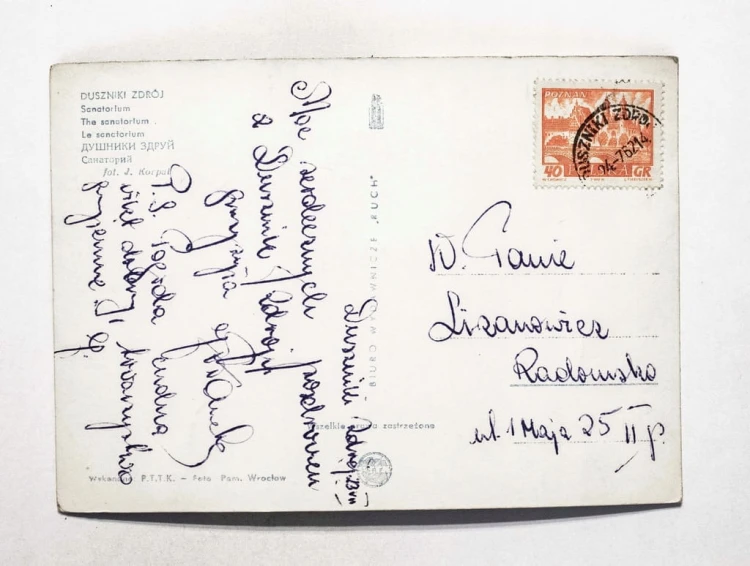 DUSZNIKI ZDRÓJ
Sanatorium
The sanatorium
Le sanatorium
ДУШНИКИ ЗДРУЙ
Санаторий
fot. J. Korpal
Moc serdecznych pozdrowień
z Dusznik Zdroju
przesyła
P.S. Pogoda cudna
wikt dobry, towarzystwo
przyjemne
Duszniki Zdrój
BIURO WYDAWNICZE „RUCH"
Wszelkie prawa zastrzeżone
P.T.T.K. - Foto Pam. Wrocław
POZNAŃ
40 GR
DUSZNIKI ZDRÓJ
W. Panie
Lizanowicz
Radomsko
ul. 1 Maja 25 II p.